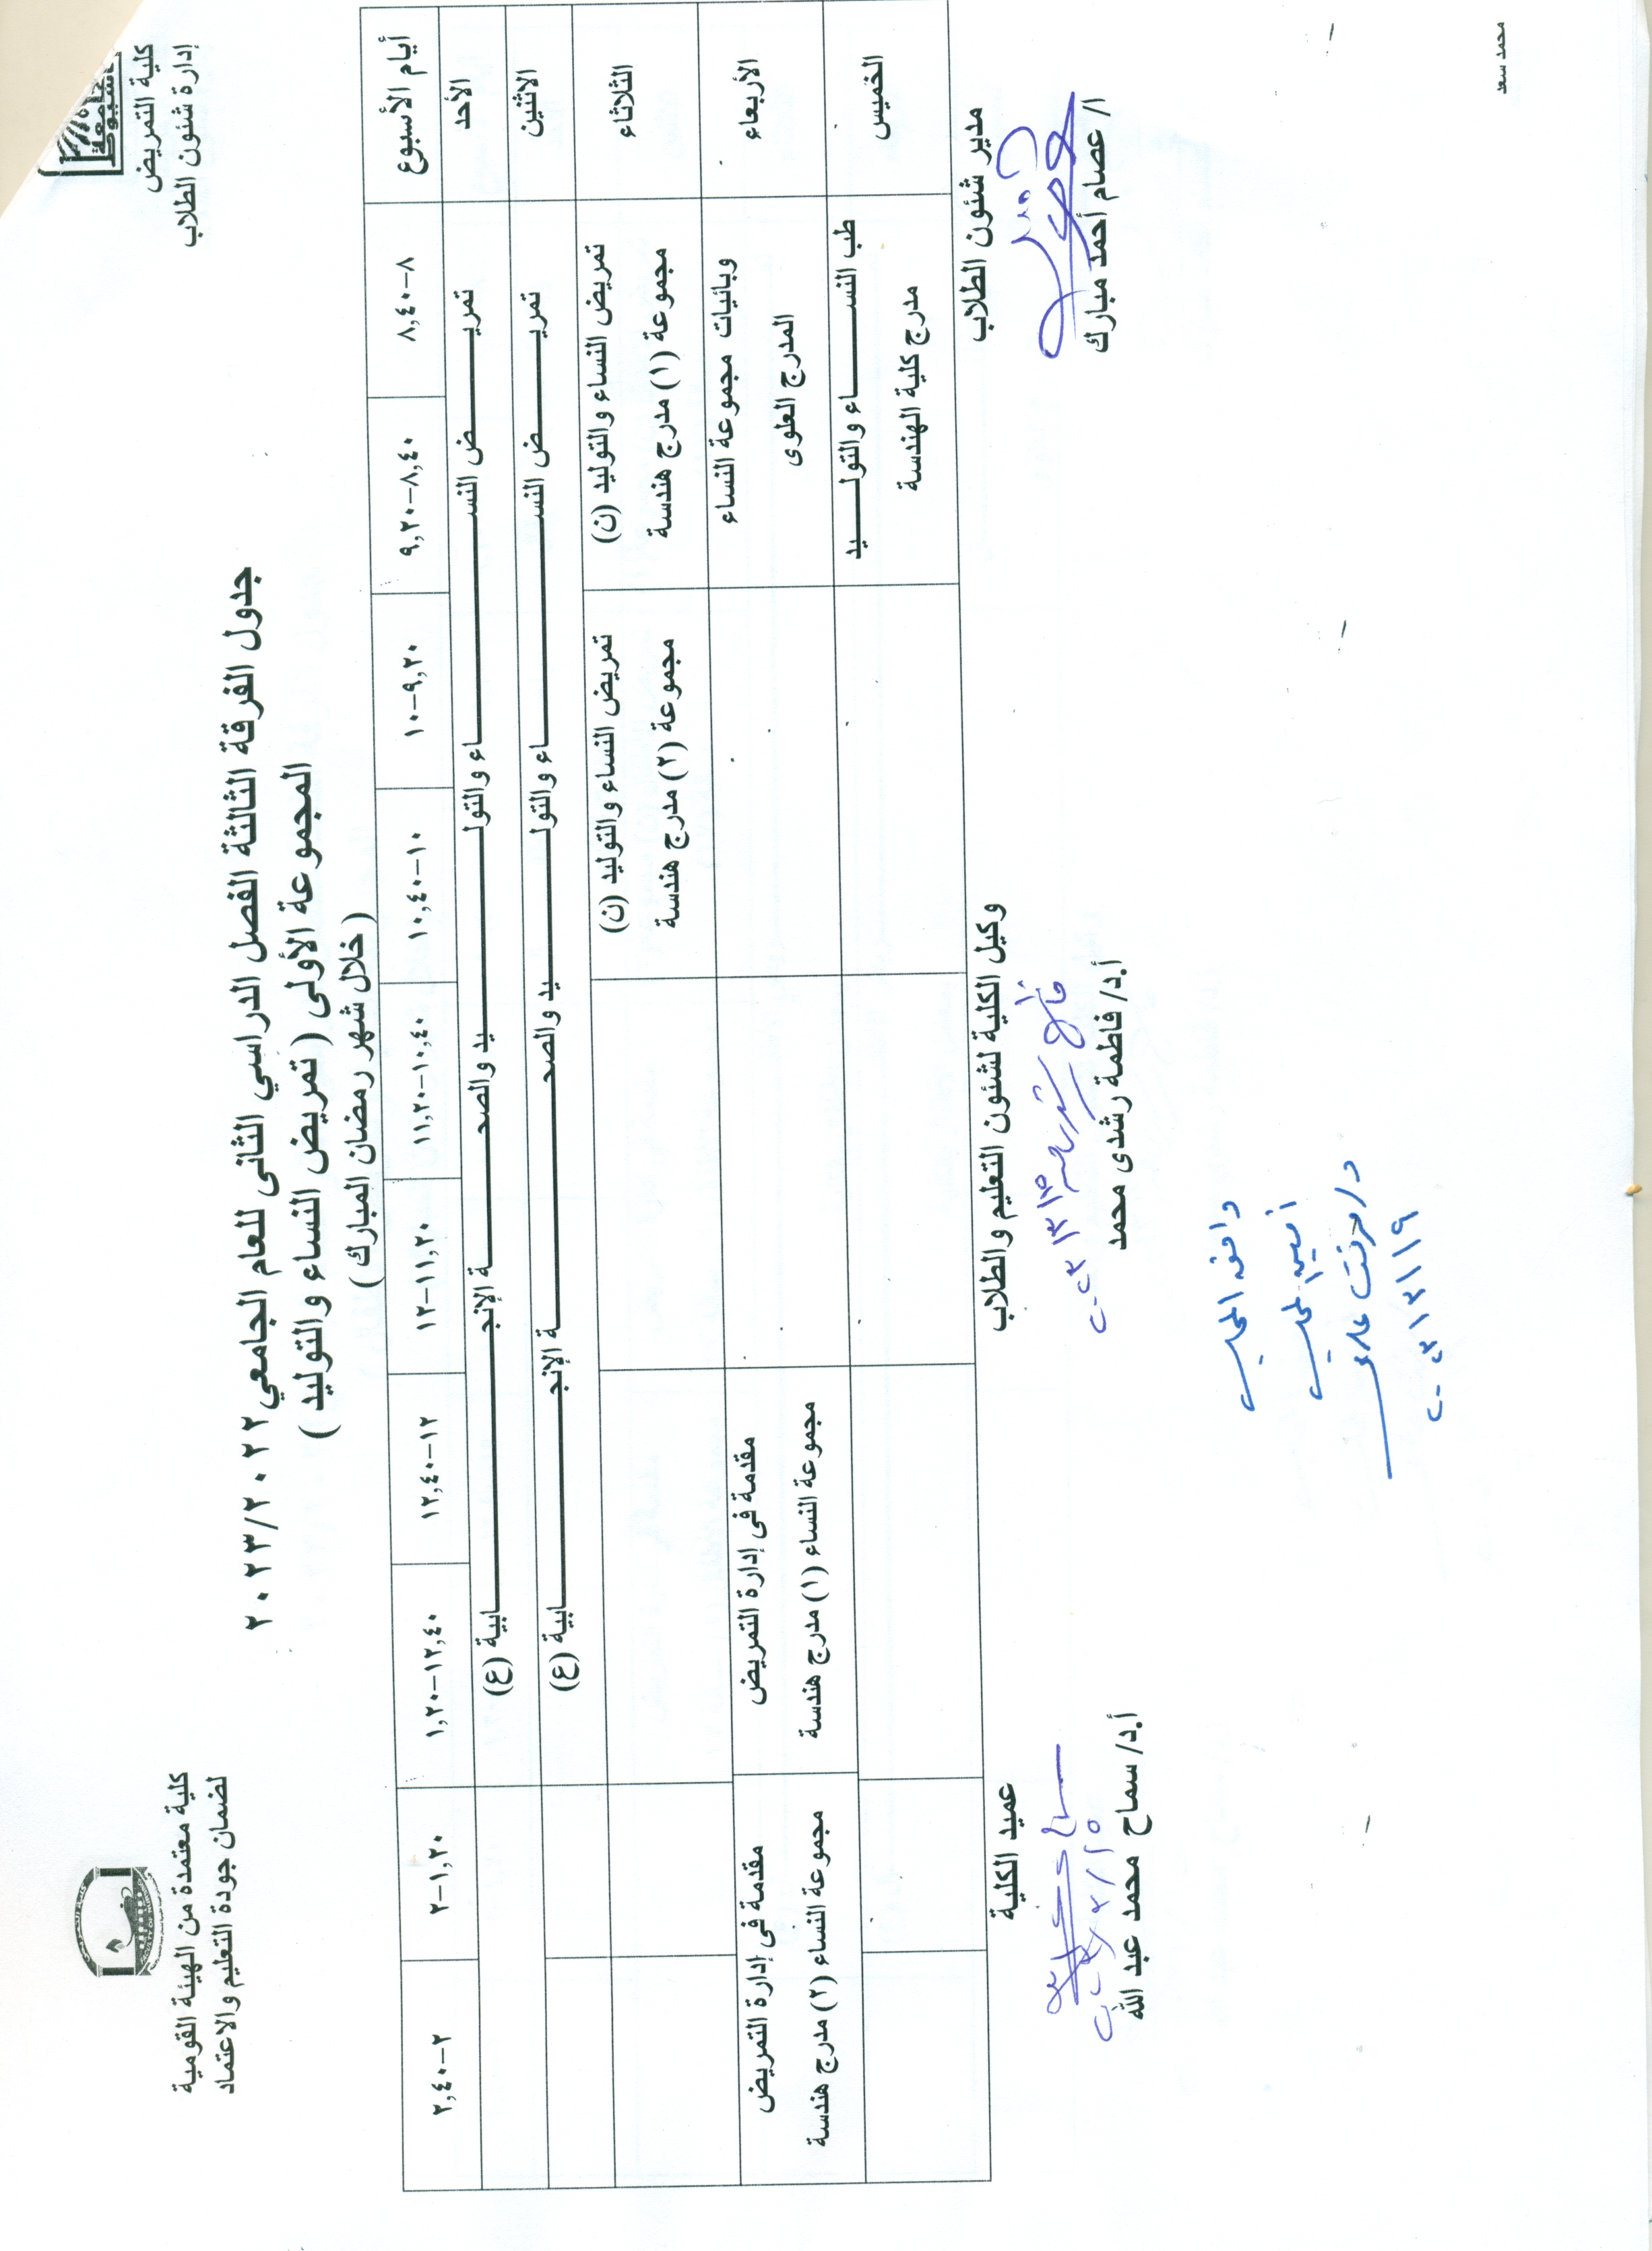 كلية التمريض
إدارة شئون الطلاب
كلية معتمدة من الهيئة القومية
لضمان جودة التعليم والاعتماد
جدول الفرقة الثالثة الفصل الدراسي الثانى للعام الجامعي ٢٠٢٣/٢٠٢٢
المجموعة الأولى ( تمريض النساء والتوليد )
( خلال شهر رمضان المبارك )
أيام الأسبوع ٨-٨,٤٠ ٨,٤٠-٩,٢٠ ٩,٢٠-١٠ ١٠-١٠,٤٠ ١٠,٤٠-١١,٢٠ ١١,٢٠-١٢ ١٢-١٢,٤٠ ١٢,٤٠-١,٢٠ ١,٢٠-٢ ٢-٢,٤٠
الأحد تمريـــض النســـاء والتوليـــد والصحـــة الإنجـــابية (ع)
الاثنين تمريـــض النســـاء والتوليـــد والصحـــة الإنجـــابية (ع)
الثلاثاء تمريض النساء والتوليد (ن) تمريض النساء والتوليد (ن)
مجموعة (١) مدرج هندسة مجموعة (٢) مدرج هندسة
الأربعاء وبائيات مجموعة النساء مقدمة فى إدارة التمريض مقدمة فى إدارة التمريض
المدرج العلوى مجموعة النساء (١) مدرج هندسة مجموعة النساء (٢) مدرج هندسة
الخميس طب النســـاء والتوليـــد
مدرج كلية الهندسة
مدير شئون الطلاب وكيل الكلية لشئون التعليم والطلاب عميد الكلية
ا/ عصام أحمد مبارك أ.د/ فاطمة رشدى محمد أ.د/ سماح محمد عبد الله
محمد سعد